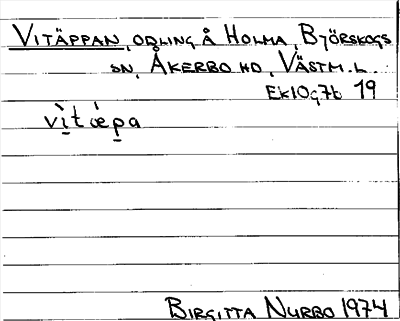 VITÄPPAN, ODLING Å HOLMA, BJÖRSKOGS
SN, ÅKERBO HD, VÄSTM.L.
Ek10g7b 19
vì̱tæ̀p̱a
BIRGITTA NURBO 1974